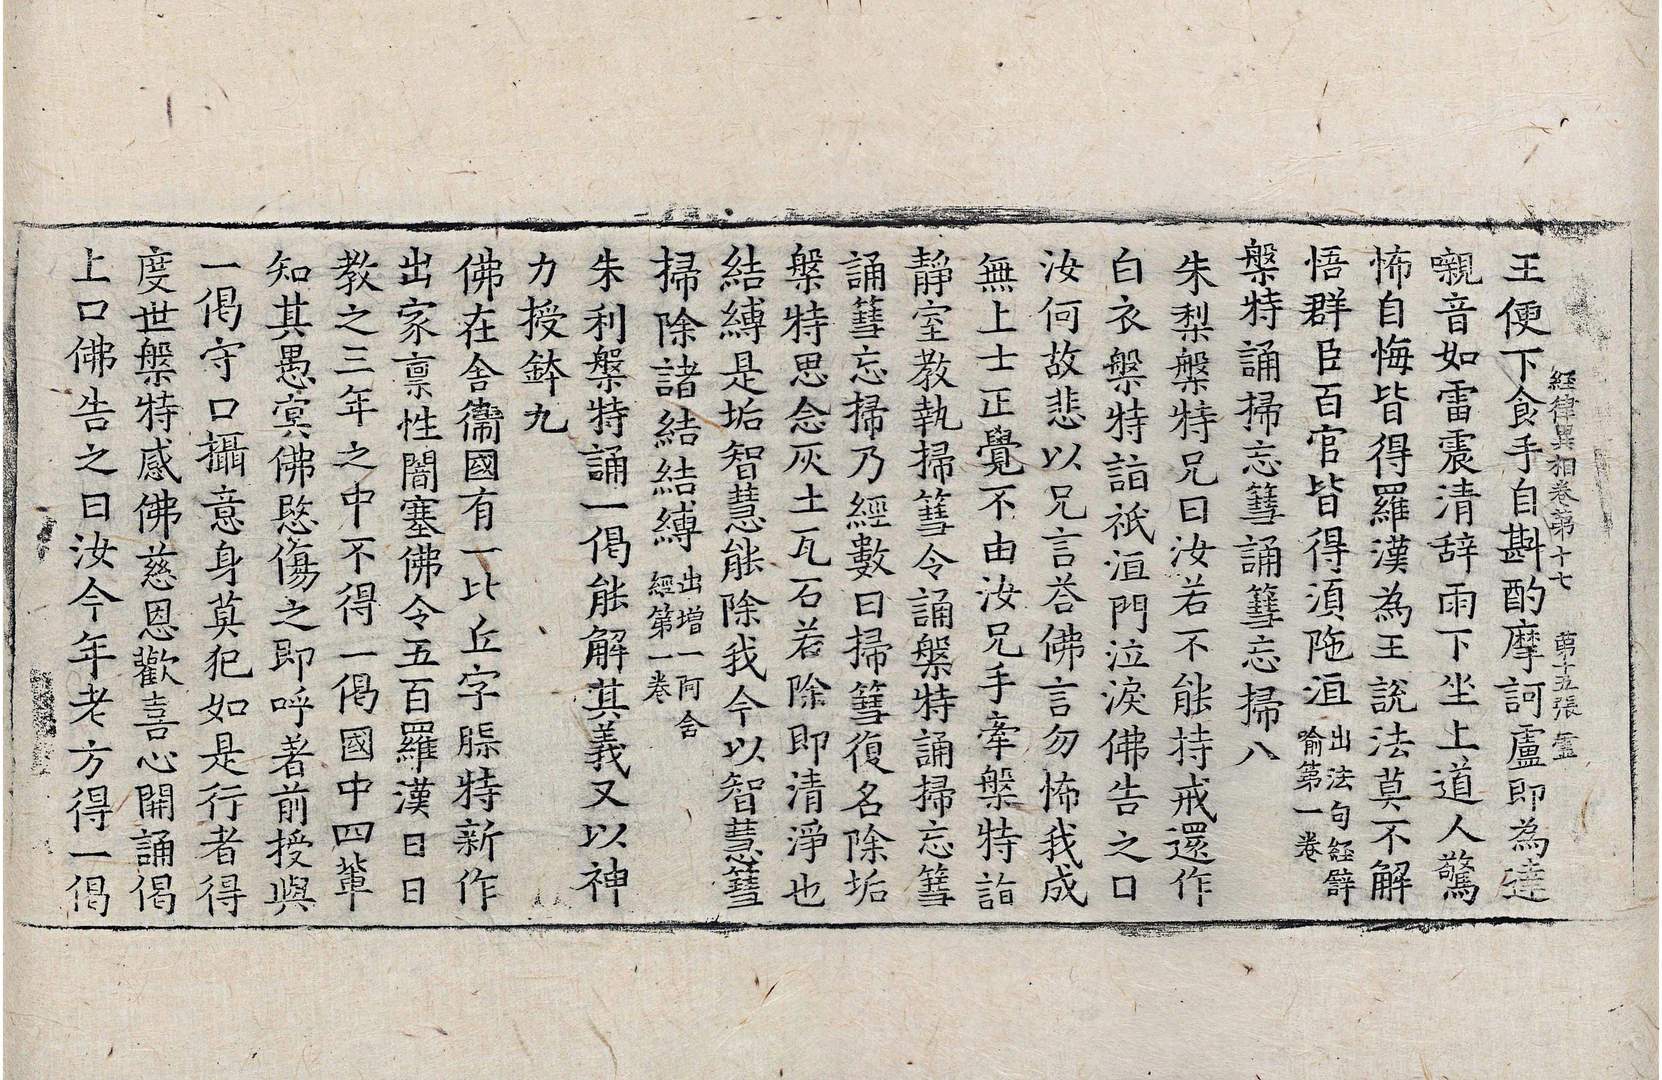 經律異相卷第十七 第十五張 靈
王便下食手自斟酌摩訶盧即為達
嚫音如雷震清辝雨下坐上道人驚
怖自悔皆得羅漢為王說法莫不解
悟群臣百官皆得湏陁洹 出法句經譬喻第一卷
槃特誦掃忘篲誦篲忘掃八
朱梨槃特兄曰汝若不能持戒還作
白衣槃特詣祇洹門泣淚佛告之曰
汝何故悲以兄言荅佛言勿怖我成
無上士正覺不由汝兄手牽槃特詣
靜室教執掃篲令誦槃特誦掃忘篲
誦篲忘掃乃經數日掃篲復名除垢
槃特思念灰土瓦石若除即清淨也
結縛是垢智慧能除我今以智慧篲
掃除諸結結縛 出增一阿含經第一卷
朱利槃特誦一偈能解其義又以神
力授鉢九
佛在舍衛國有一比丘字槃特新作
出家禀性闇塞佛令五百羅漢日日
教之三年之中不得一偈國中四輩
知其愚㝠佛愍傷之即呼著前授與
一偈守口攝意身莫犯如是行者得
度世槃特感佛慈恩歡喜心開誦偈
上口佛告之曰汝今年老方得一偈